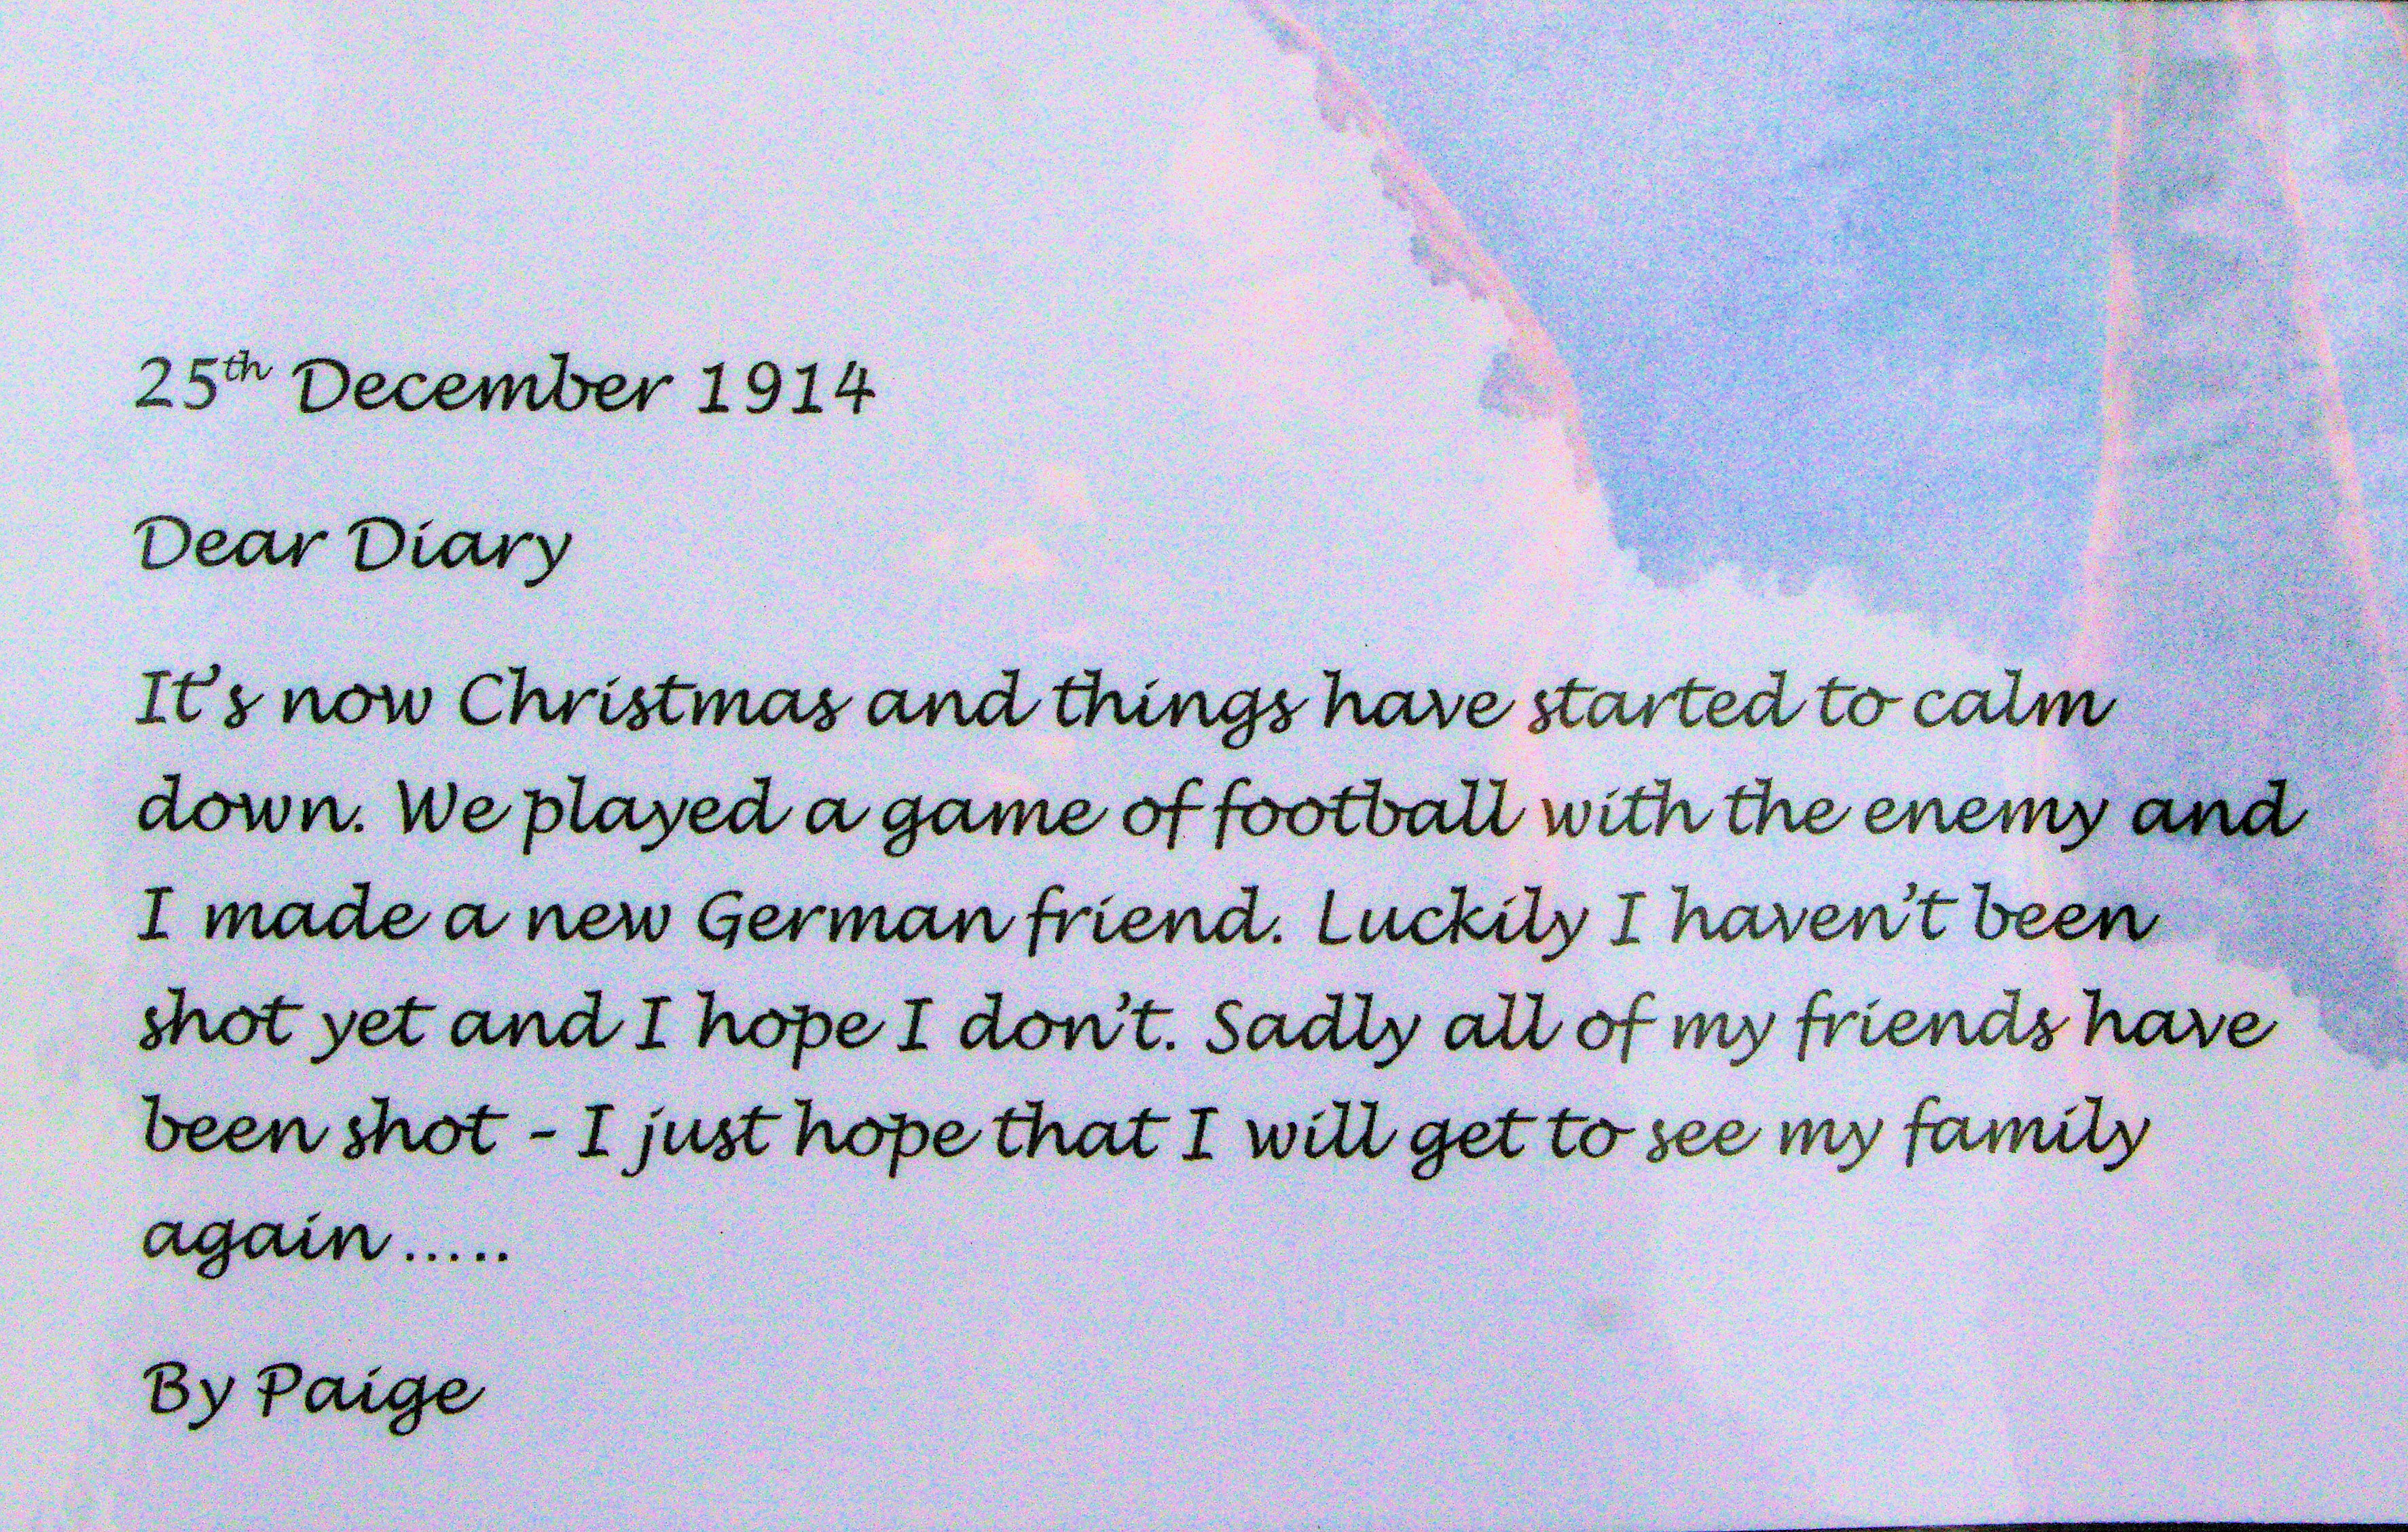 25th December 1914
Dear Diary
It's now Christmas and things have started to calm
down. We played a game of football with the enemy and
I made a new German friend. Luckily I haven't been
shot yet and I hope I don't. Sadly all of my friends have
been shot - I just hope that I will get to see my family
again.....
By Paige